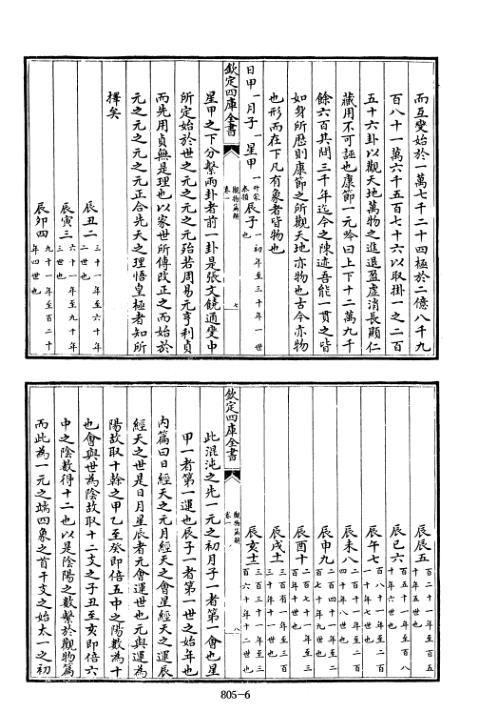 而互變始於一萬七千二十四極於二億八千九
百八十一萬六千五百七十六以取掛一之二百
五十六卦以觀天地萬物之進退盈虛消長顯仁
藏用不可誣也康節一元吟曰上下十二萬九千
餘六百其間三千年迄今之陳迹吾能一貫之皆
如身所歴則康節之所觀天地亦物也古今亦物
也形而在下凡有象者皆物也
日甲一月子一星甲一
辰子一
一初年至三十年一世
也
欽定四庫全書
觀物篇解
卷一
七
星甲之下分繫兩卦者前一卦是張文饒通變中
所定始於世之元之元之元殆若周易元亨利貞
而先用貞無是理也以家世所傳改正之而始於
元之元之元之元正合先天之理悟皇極者知所
擇矣
辰丑二
三十一年至六十年
二世也
辰寅三
六十一年至九十年
三世也
辰卯四
九十一年至百二十
年四世也
辰辰五
百二十一年至百五
十年五世也
辰巳六
百五十一年至百八
十年六世也
辰午七
百八十一年至二百
一十年七世也
辰未八
二百一十一年至二百
四十年八世也
辰申九
二百四十一年至二
百七十年九世也
辰酉十
二百七十一年至三
百年十世也
辰戌十一
三百有一年至三百
三十年十一世也
辰亥十二
三百三十一年至三
百六十年十二世也
欽定四庫全書
觀物篇解
卷一
八
此混沌之先一元之初月子一者第一會也星
甲一者第一運也辰子一者第一世之始年也
内篇曰日經天之元月經天之會星經天之運辰
經天之世是日月星辰者元會運世也元與運為
陽故取十幹之甲乙至癸即倍五中之陽數為十
也會與世為陰故取十二支之子丑至亥即倍六
中之陰數得十二也以是陰陽之數繫於觀物篇
而此為一元之端四象之首干支之始太一之初
805-6